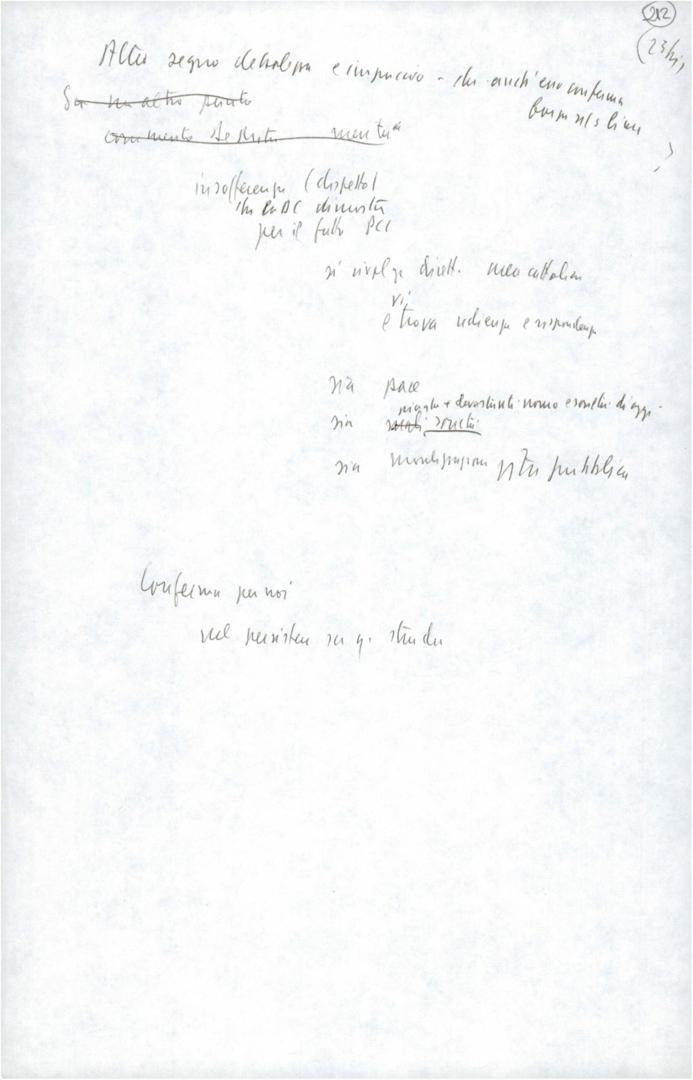 212
(23/
Altro segno debolezza e impaccio - che anch'esso conferma
bontà ns/ linea
Su un altro punto
commento
insofferenza (dispetto)
che la DC dimostra
per il fatto PCI
si rivolge dirett. mondo cattolico
vi
e trova udienza e rispondenza
sia pace
piaghe + devastanti uomo e società di oggi
sia società
sia moralizzazione vita pubblica
Conferma per noi
nel persistere su q. strada